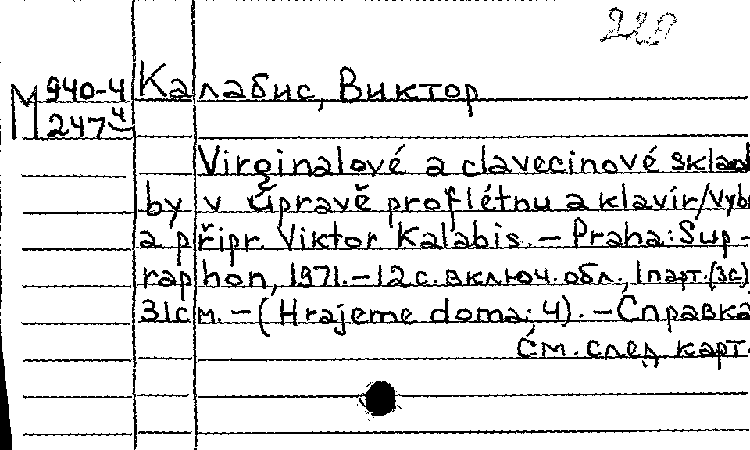 220
М 940-4 Калабис, Виктор
247 4
Virginalové a clavecinové sklad
by v úpravě proflétnu a klavír/Vybr
a připr. Viktor Kalabis. – Praha: Sup-
raphon, 1971. – 12 с. включ. обл., 1 парт. (3с)
31 см. – (Hrajeme doma; 4). – Справка
См. след карт.